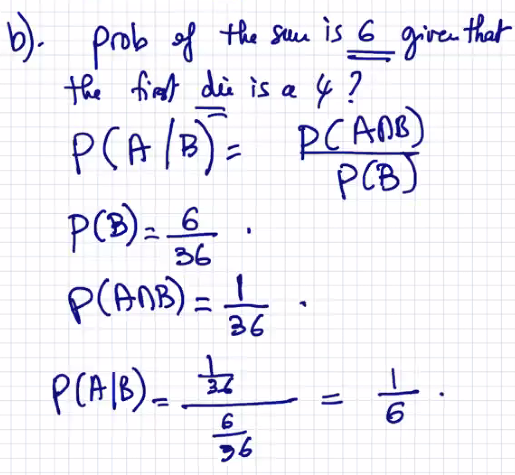 b). Prob of the sum is 6 given that
the first die is a 4?
P(A/B) = P(A∩B)/P(B)
P(B) = 6/36 .
P(A∩B) = 1/36 .
P(A|B) = (1/36)/(6/36) = 1/6 .